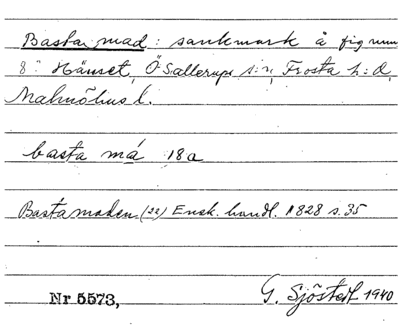 Basta mad: sankmark å fig num
8° Hänset, Ö Sallerups s:n, Frosta h:d,
Malmöhus l.
basta má 18a
Bastamaden (22) Ensk. handl. 1828 s. 35
Nr 5573, G. Sjöstedt 1940